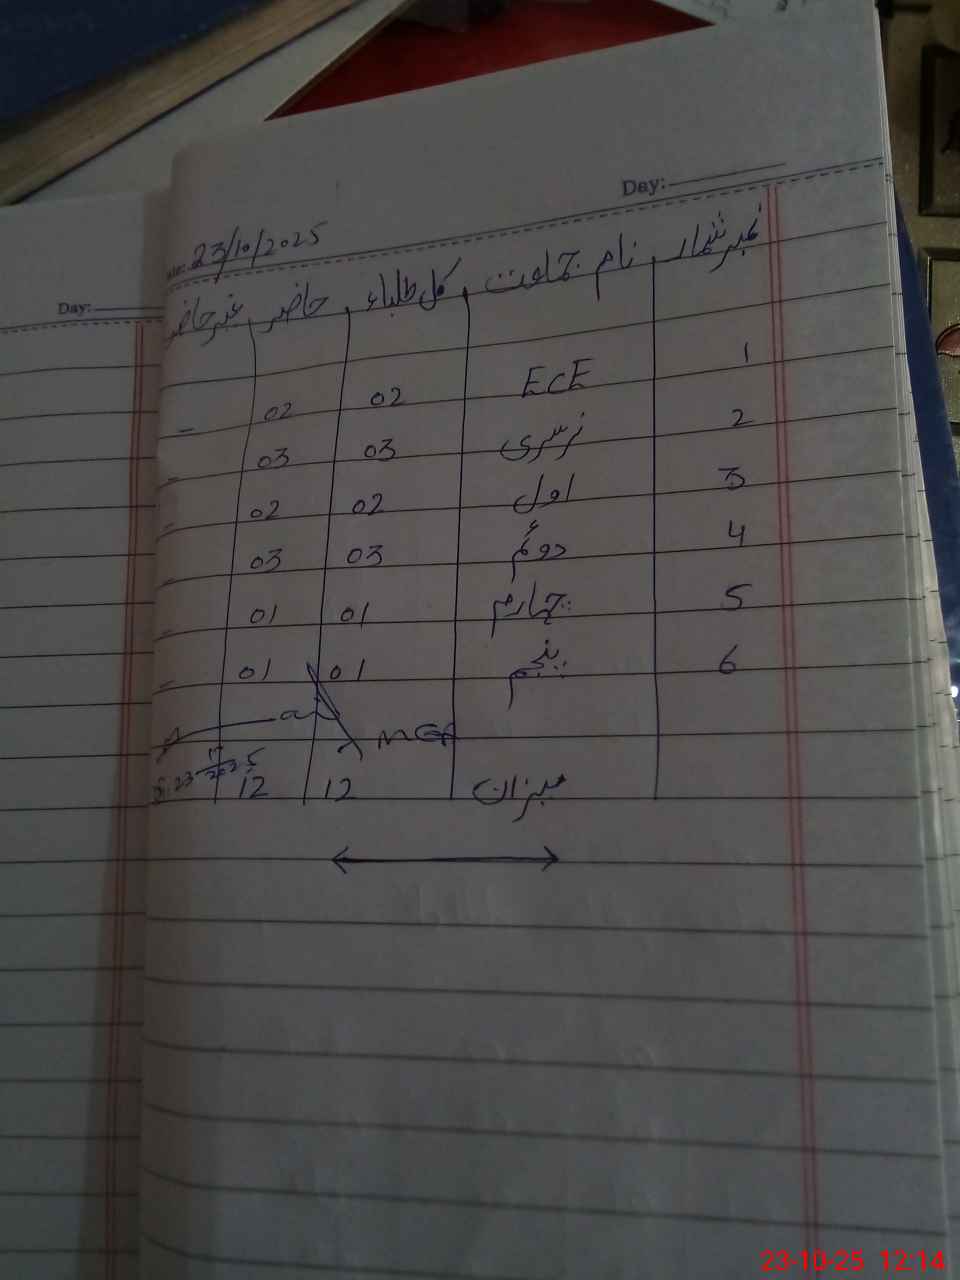 Day:
23/10/2025
Day:
نمبر شمار نام جماعت کل طلباء حاضر غیر حاضر
1 ECE 02 02 -
2 نرسری 03 03 -
3 اول 02 02 -
4 دوئم 03 03 -
5 چہارم 01 01 -
6 پنجم 01 01 -
میزان 12 12
23-10-25 12:14